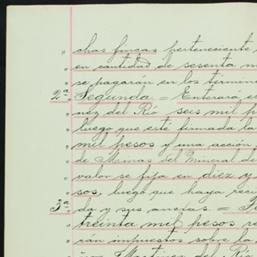 chas fincas perteneciente
en cantidad de sesenta m
se pagarán en los termin
2ª Segunda = Enterará e
nez del Río seis mil p
luego que esté firmada l
mil pesos y una acción
de Minas del Mineral d
valor se fija en diez y
sos, luego que haya reci
3ª do y sus anexas =
treinta mil pesos re
rán impuestos sobre la
Martinez del Río